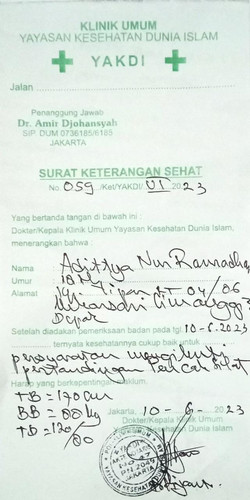 KLINIK UMUM
YAYASAN KESEHATAN DUNIA ISLAM
YAKDI
Jalan
Penanggung Jawab
Dr. Amir Djohansyah
SIP. DUM 0736185/6185
JAKARTA
SURAT KETERANGAN SEHAT
No. 059 /Ket/YAKDI/ VI 2023
Yang bertanda tangan di bawah ini :
Dokter/Kepala Klinik Umum Yayasan Kesehatan Dunia Islam,
menerangkan bahwa :
Nama Adittya Nur Ramadhan
Umur 18 th
Alamat RT 04/06
Depok
Setelah diadakan pemeriksaan badan pada tgl 10-6-2023
ternyata kesehatannya cukup baik untuk
persyaratan mengikuti
pertandingan Pencak Silat
Harap yang berkepentingan maklum.
TB = 170 cm
Jakarta, 10-6-2023
BB = 88 kg
Dokter/Kepala Klinik Umum
Yayasan Kesehatan Dunia Islam
TD = 120/80